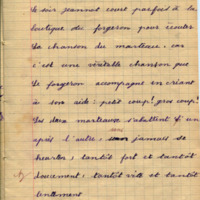 Le soir jeannot court parfois à la
boutique du forgeron pour écouter
La chanson du marteau, car
c'est une véritable chanson que
Le forgeron accompagne en criant
à son aide : petit coup ! gros coup !
Les deux marteaux s'abattent l'un
après l'autre, sans jamais se
heurter, tantôt fort et tantôt
doucement, tantôt vite et tantôt
lentement